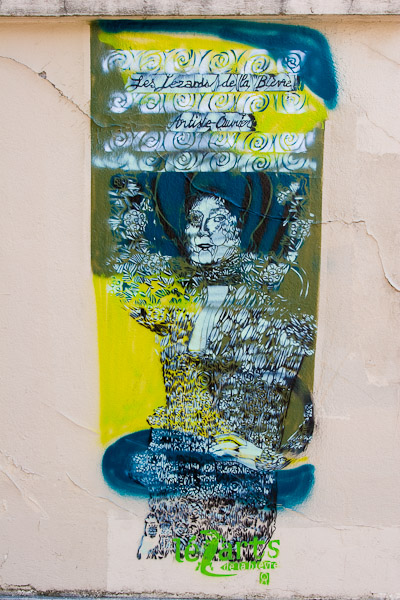 Les Lézarts de la Bièvre
Artiste-Ouvrier
léZarts
de la bièvre